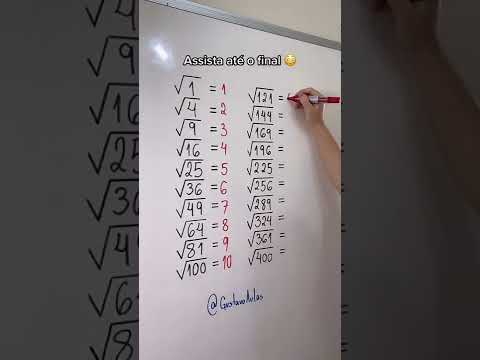 Assista até o final 😳
√1 = 1
√4 = 2
√9 = 3
√16 = 4
√25 = 5
√36 = 6
√49 = 7
√64 = 8
√81 = 9
√100 = 10
√121 =
√144 =
√169 =
√196 =
√225 =
√256 =
√289 =
√324 =
√361 =
√400 =
@GustavoAulas